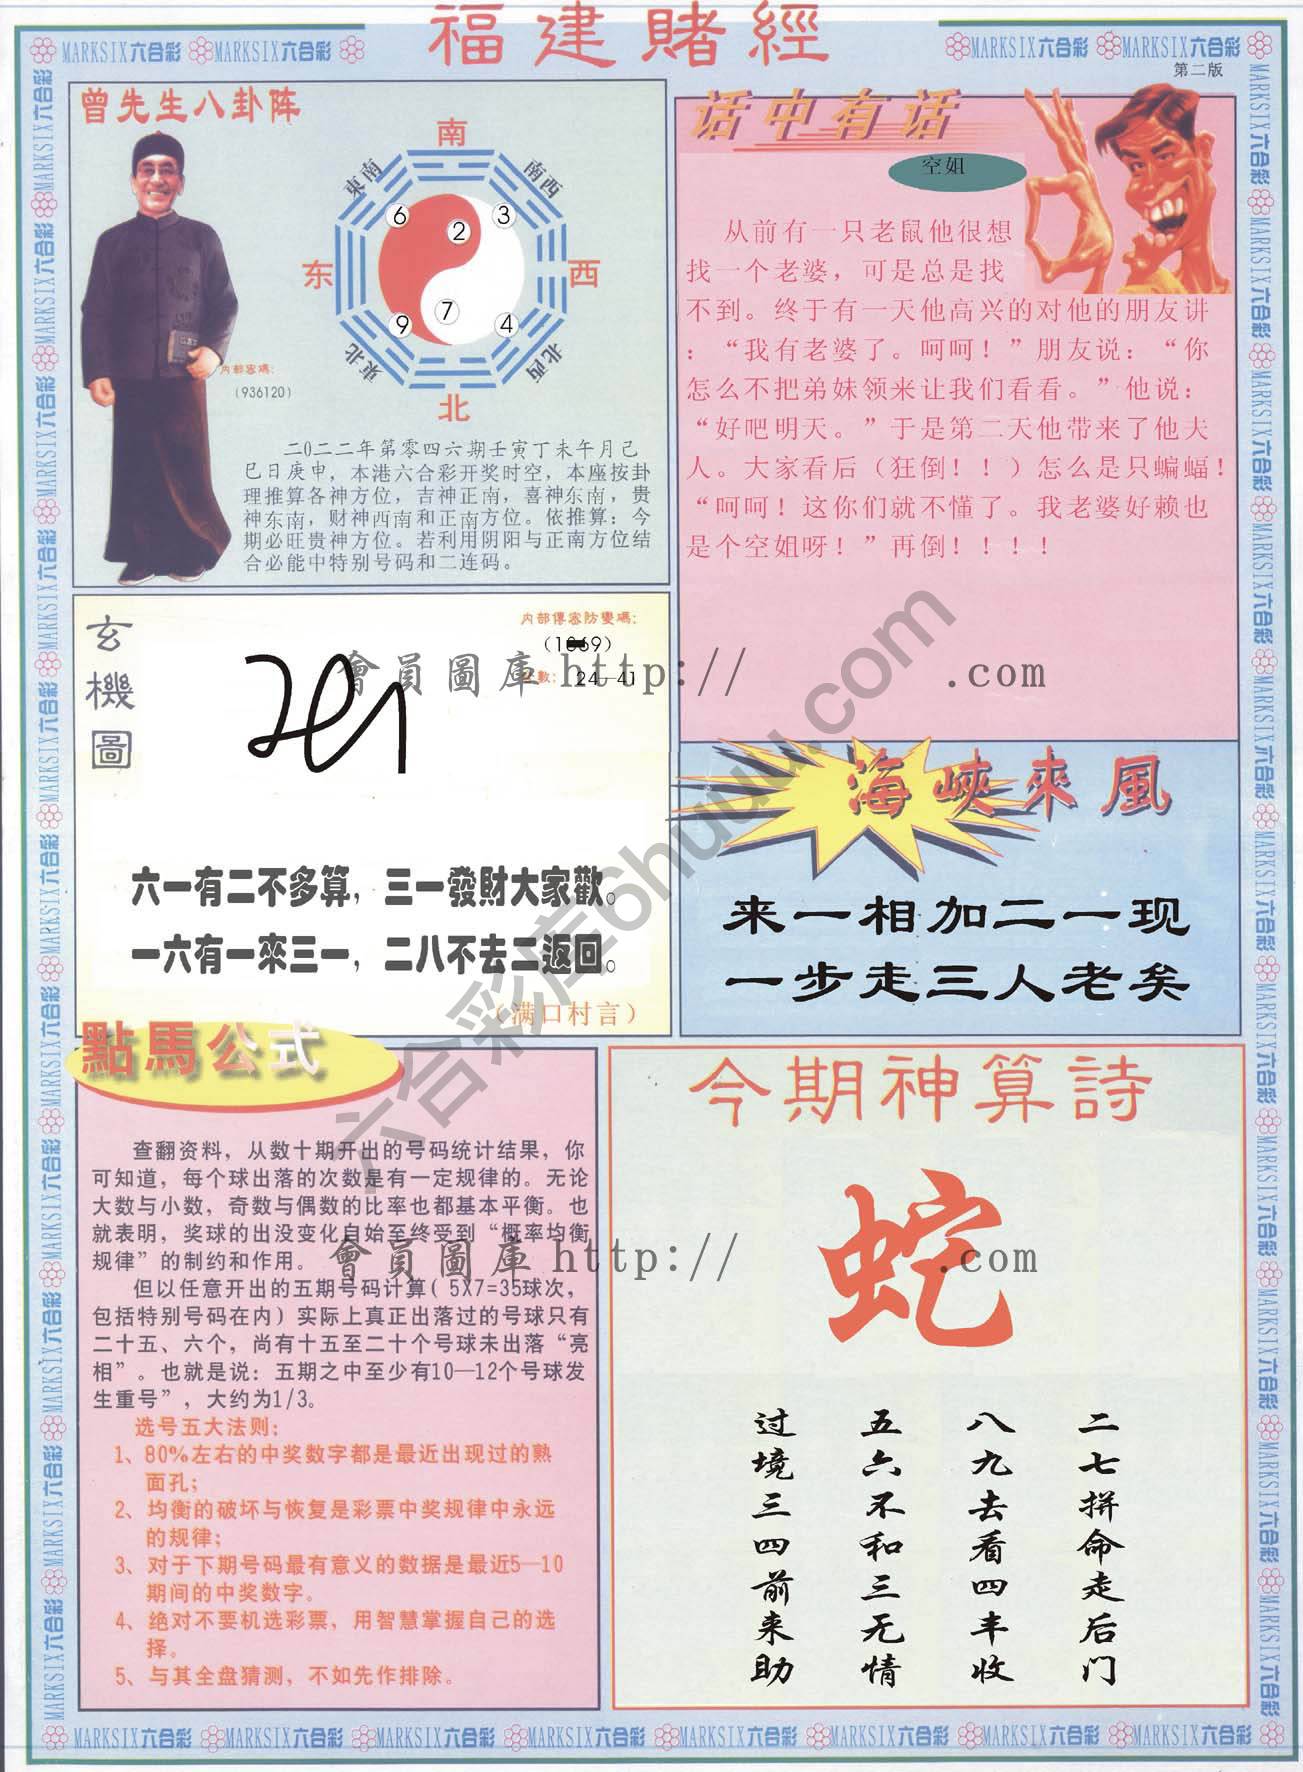 福建賭經
MARKSIX六合彩 MARKSIX六合彩
MARKSIX六合彩 MARKSIX六合彩
第二版
曾先生八卦阵
南
東南
南西
6
2
3
东
西
7
9
4
東北
北西
北
内部密碼:
(936120)
二0二二年第零四六期壬寅丁未午月己
巳日庚申，本港六合彩开奖时空，本座按卦
理推算各神方位，吉神正南，喜神东南，贵
神东南，财神西南和正南方位。依推算：今
期必旺贵神方位。若利用阴阳与正南方位结
合必能中特别号码和二连码。
话中有话
空姐
从前有一只老鼠他很想
找一个老婆，可是总是找
不到。终于有一天他高兴的对他的朋友讲
：“我有老婆了。呵呵！”朋友说：“你
怎么不把弟妹领来让我们看看。”他说：
“好吧明天。”于是第二天他带来了他夫
人。大家看后（狂倒！！）怎么是只蝙蝠！
“呵呵！这你们就不懂了。我老婆好赖也
是个空姐呀！”再倒！！！！
玄機圖
内部傳密防變碼:
數: 24—41
會員圖庫 http:// .com
六一有二不多算，三一發財大家歡。
一六有一來三一，二八不去二返回。
（满口村言）
海峽來風
来一相加二一现
一步走三人老矣
六合彩库6huuu.com
點馬公式
查翻资料，从数十期开出的号码统计结果，你
可知道，每个球出落的次数是有一定规律的。无论
大数与小数，奇数与偶数的比率也都基本平衡。也
就表明，奖球的出没变化自始至终受到“概率均衡
规律”的制约和作用。
但以任意开出的五期号码计算(5X7=35球次，
包括特别号码在内)实际上真正出落过的号球只有
二十五、六个，尚有十五至二十个号球未出落“亮
相”。也就是说：五期之中至少有10—12个号球发
生重号”，大约为1/3。
选号五大法则：
1、80%左右的中奖数字都是最近出现过的熟
面孔；
2、均衡的破坏与恢复是彩票中奖规律中永远
的规律；
3、对于下期号码最有意义的数据是最近5—10
期间的中奖数字。
4、绝对不要机选彩票，用智慧掌握自己的选
择。
5、与其全盘猜测，不如先作排除。
會員圖庫 http:// .com
今期神算詩
蛇
二七拼命走后门
八九去看四丰收
五六不和三无情
过境三四前来助
MARKSIX六合彩 MARKSIX六合彩 MARKSIX六合彩 MARKSIX六合彩 MARKSIX六合彩 MARKSIX六合彩 MARKSIX六合彩 MARKSIX六合彩